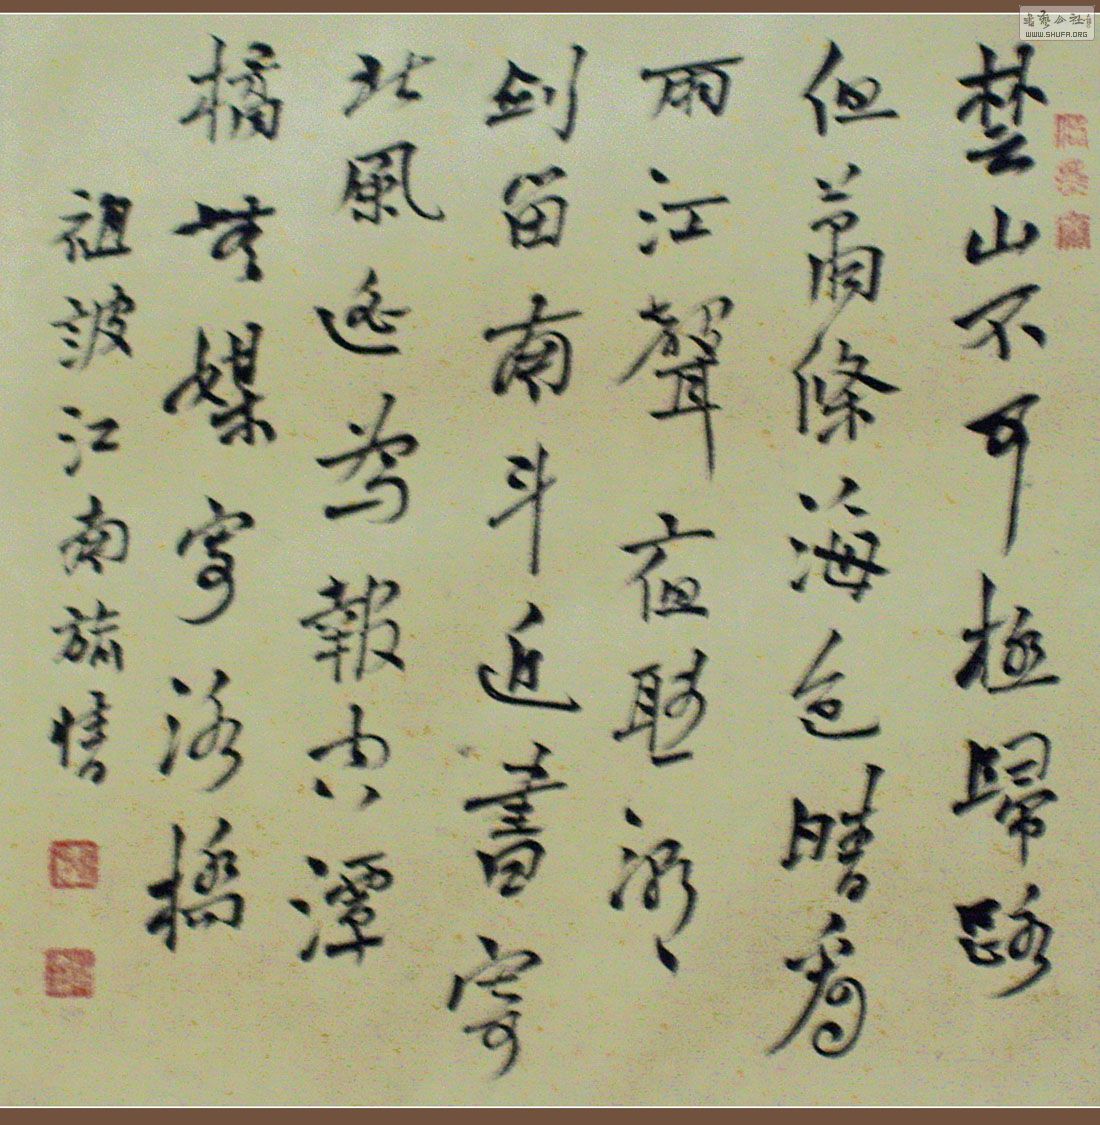 楚山不可極歸路
但蕭條海色晴看
雨江聲亱聽潮
劍留南斗近書寄
北風遙為報空潭
橘無媒寄洛橋
祖詠江南旅情
书艺公社
WWW.SHUFA.ORG